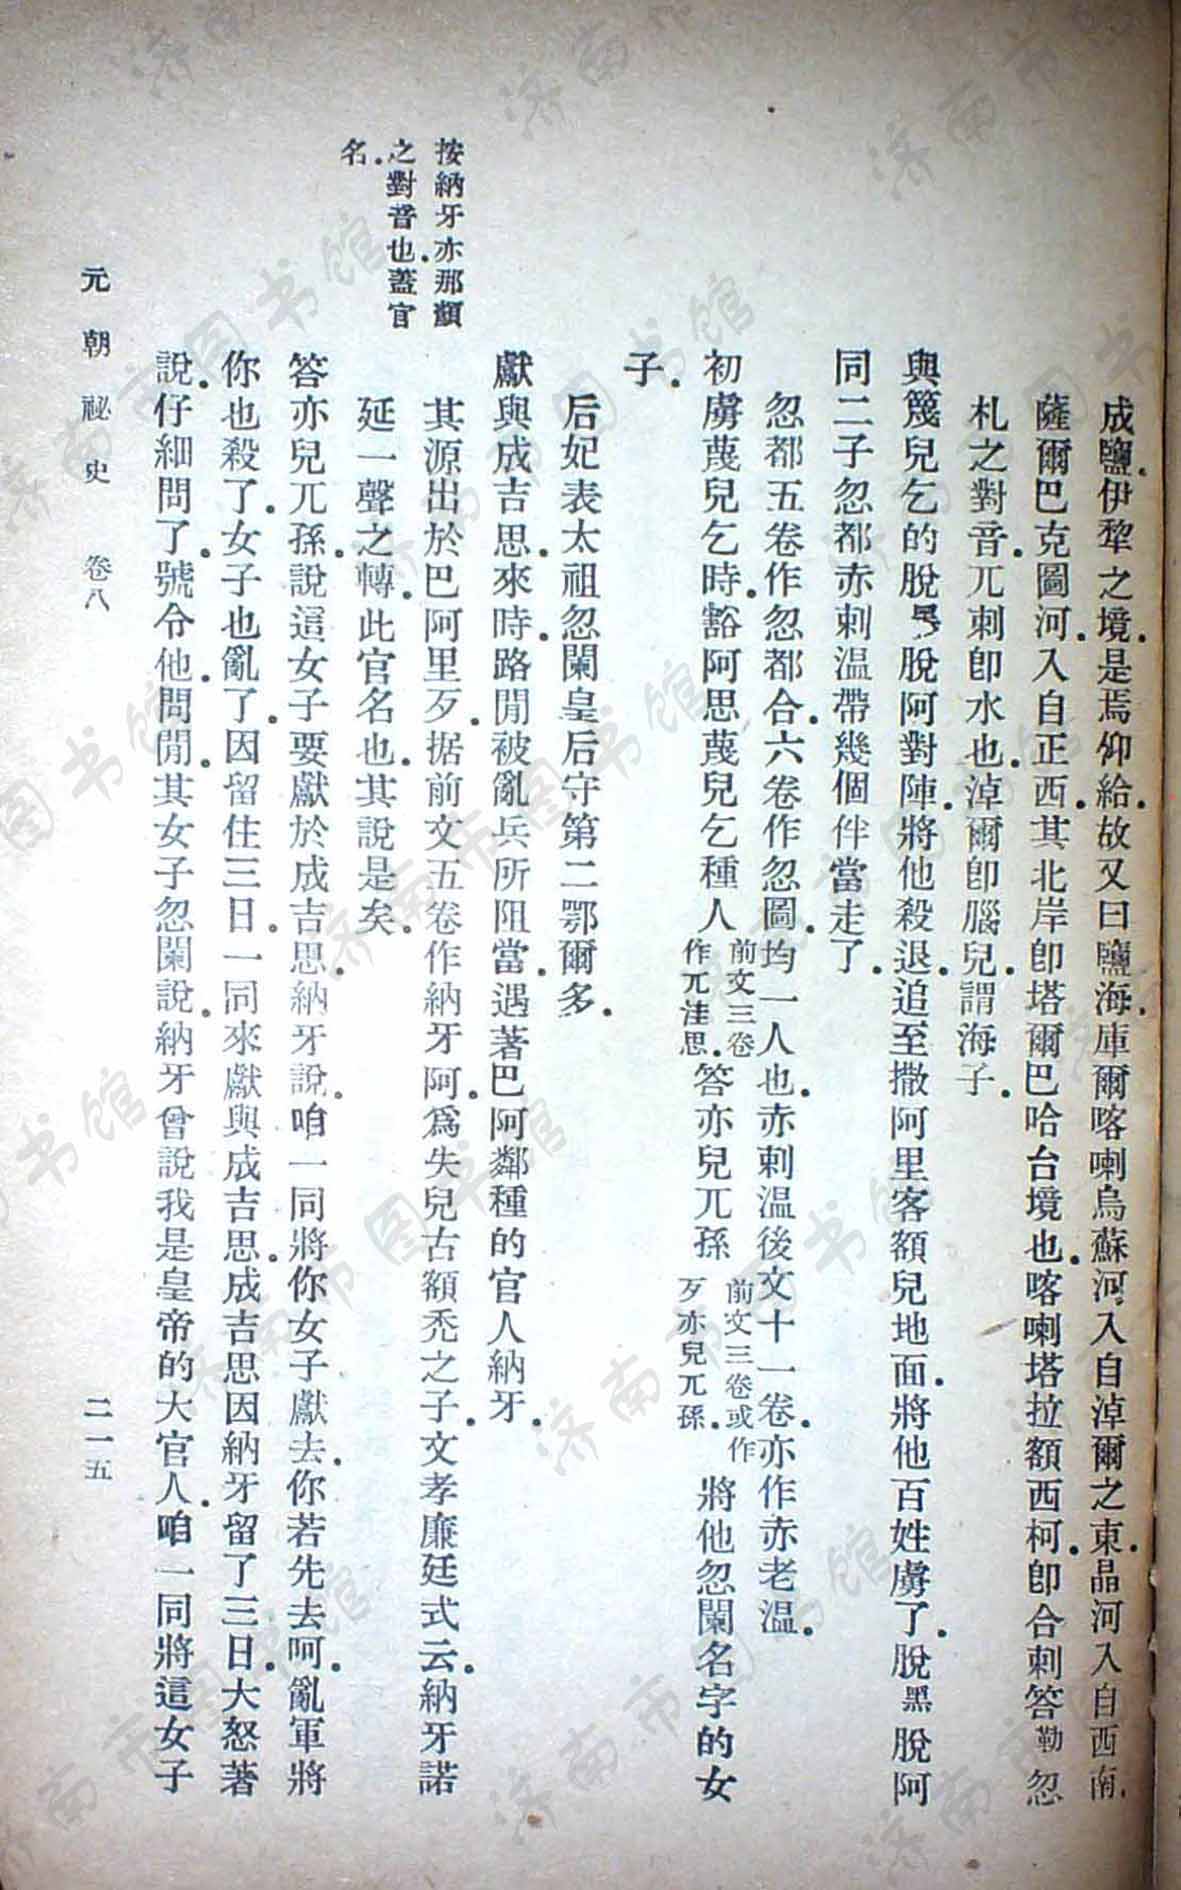 成鹽。伊犂之境。是焉仰給。故又曰鹽海。庫爾喀喇烏蘇河。入自淖爾之東。晶河入自西南。
薩爾巴克圖河。入自正西。其北岸卽塔爾巴哈台境也。喀喇塔拉額西柯。卽合剌答勒忽
札之對音。兀剌卽水也。淖爾卽腦兒。謂海子。
與篾兒乞的脫黑脫阿對陣。將他殺退。追至撒阿里客額兒地面。將他百姓虜了。脫黑脫阿
同二子忽都赤剌溫帶幾個伴當走了。
忽都五卷作忽都合。六卷作忽圖。均一人也。赤剌溫後文十一卷。亦作赤老溫。
初虜蔑兒乞時。豁阿思蔑兒乞種人前文三卷作兀洼思。答亦兒兀孫前文三卷或作歹亦兒兀孫。將他忽闌名字的女
子。
后妃表太祖忽闌皇后守第二鄂爾多。
獻與成吉思。來時。路閒被亂兵所阻當。遇著巴阿鄰種的官人納牙。
其源出於巴阿里歹。据前文五卷作納牙阿。爲失兒古額禿之子。文孝廉廷式云。納牙諾
延一聲之轉。此官名也。其說是矣。
按納牙亦那顏
之對音也。蓋官
名。
答亦兒兀孫。說這女子要獻於成吉思。納牙說。咱一同將你女子獻去。你若先去呵。亂軍將
你也殺了。女子也亂了。因留住三日。一同來獻與成吉思。成吉思因納牙留了三日。大怒著
說。仔細問了。號令他。問閒。其女子忽闌說。納牙曾說我是皇帝的大官人。咱一同將這女子
元朝祕史 卷八 二一五
济南市图书馆